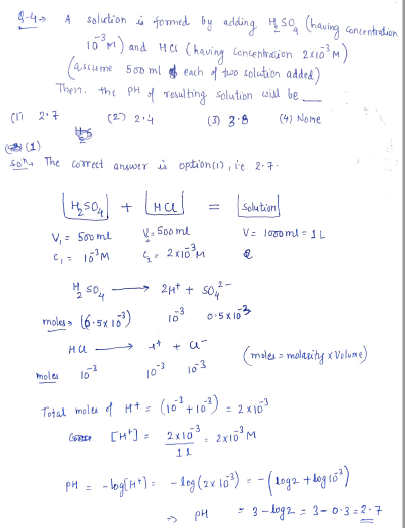 Q-4→ A solution is formed by adding H2SO4 (having concentration
10^-3 M) and HCl (having Concentration 2x10^-3 M)
(assume 500 ml of each of two solution added)
Then, the PH of resulting solution will be __
(1) 2.7 (2) 2.4 (3) 3.8 (4) None
(1)
Soln, The correct answer is option (1), i'e 2.7.
H2SO4 + HCl = Solution
V1 = 500ml V2 = 500ml V = 1000ml = 1L
C1 = 10^-3 M C2 = 2x10^-3 M
H2SO4 → 2H+ + SO4^2-
moles→ (0.5x10^-3) 10^-3 0.5x10^-3
HCl → H+ + Cl-
(moles = molarity x Volume)
moles 10^-3 10^-3 10^-3
Total moles of H+ = (10^-3 + 10^-3) = 2x10^-3
[H+] = 2x10^-3 / 1L = 2x10^-3 M
PH = -log[H+] = -log(2x10^-3) = -(log2 + log10^-3)
⇒ PH = 3-log2 = 3-0.3 = 2.7